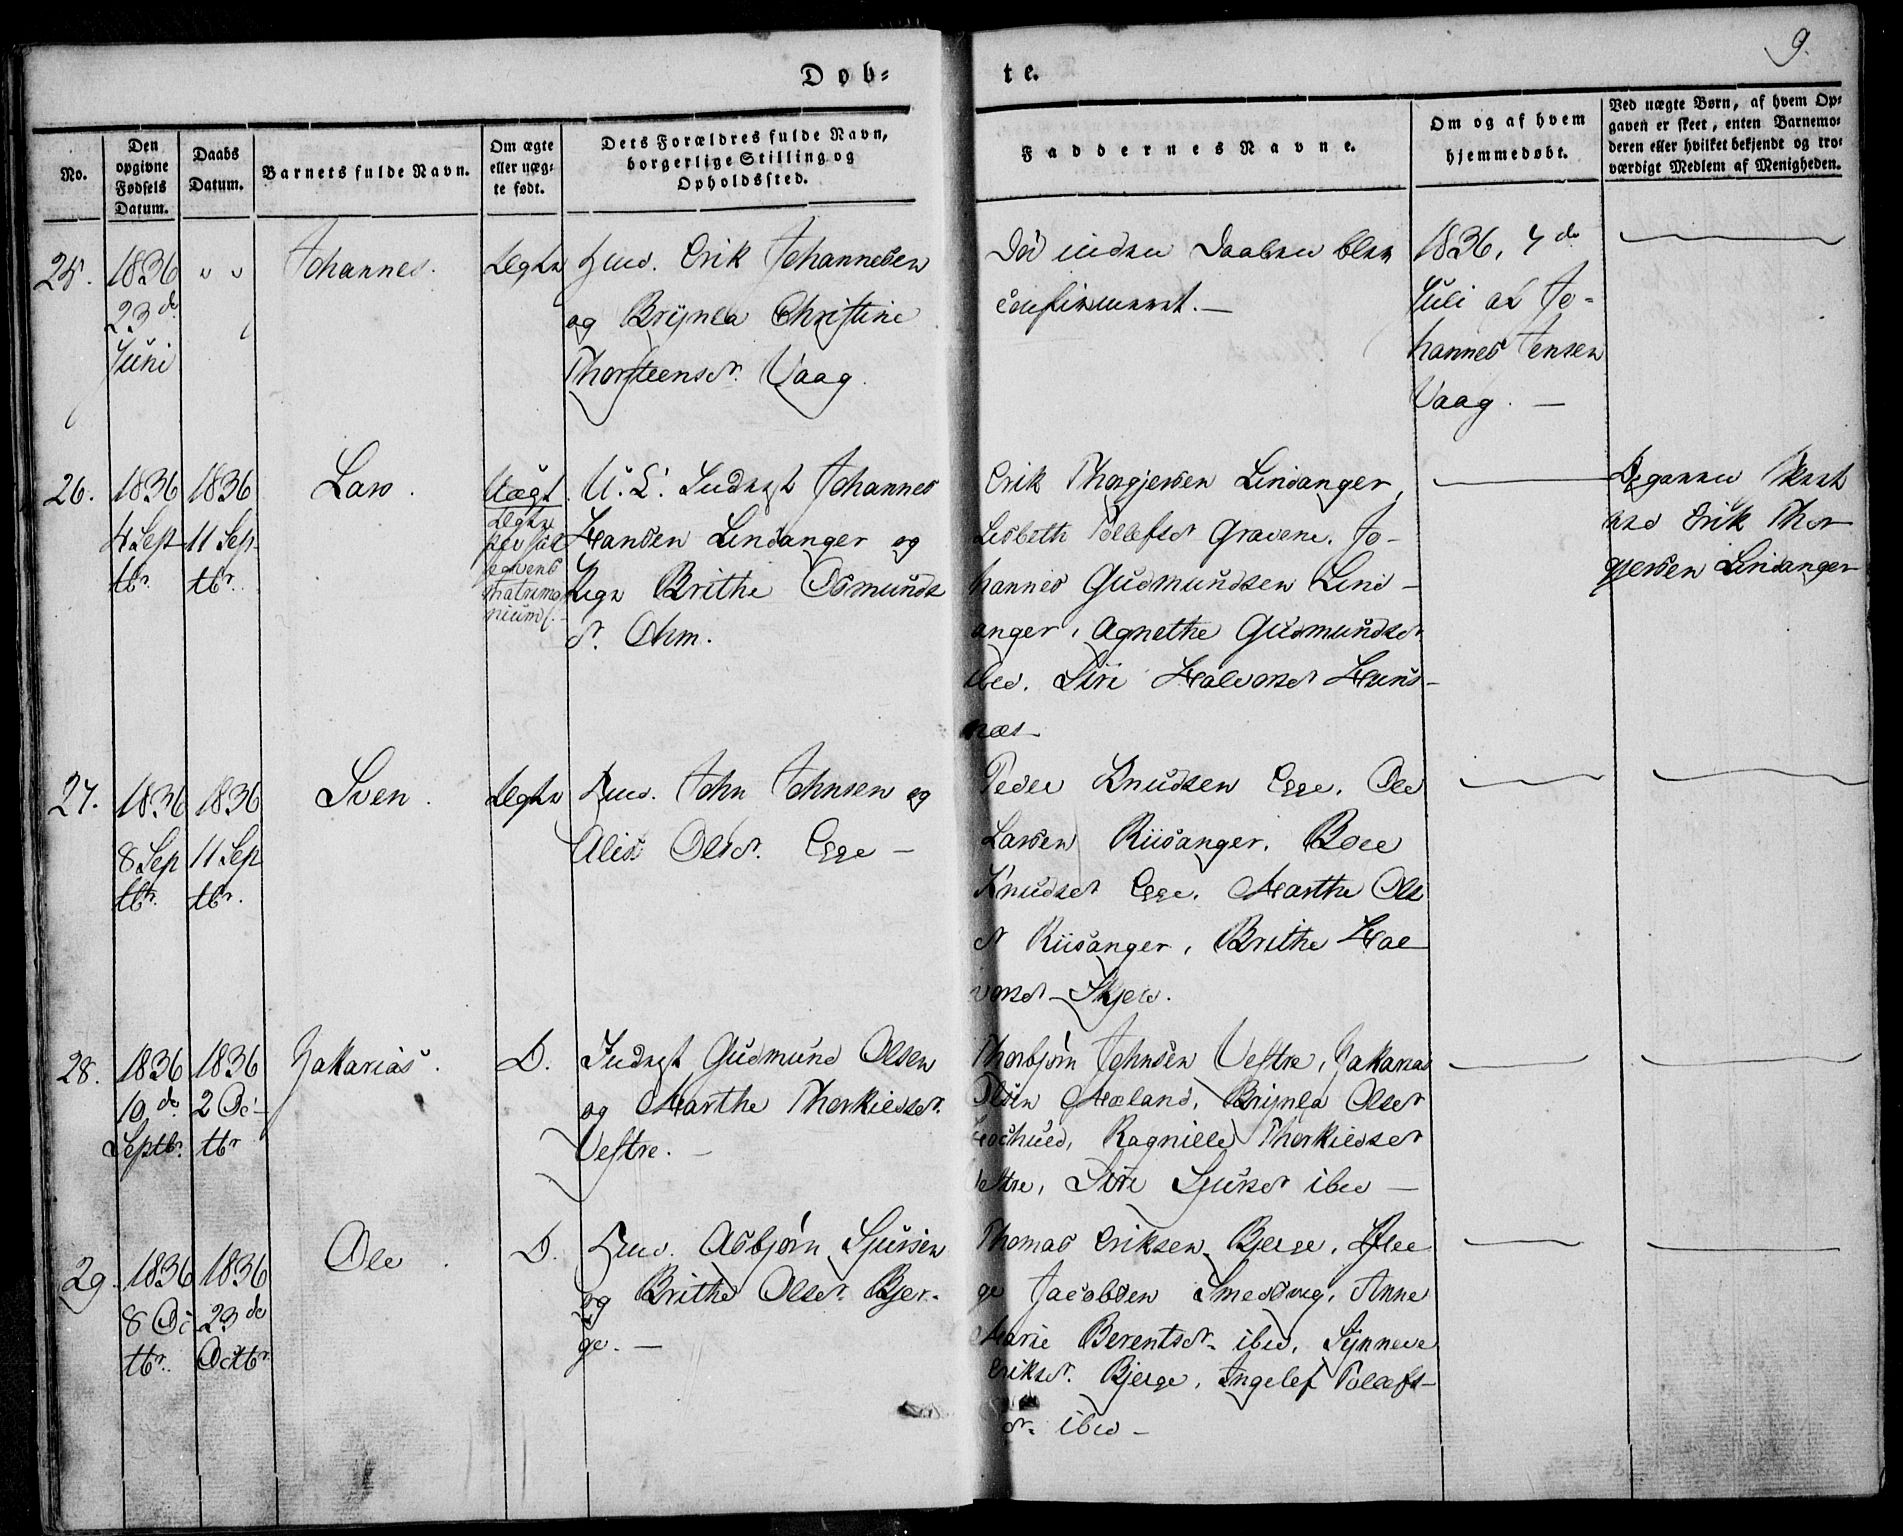 9.
Døb- te.
No.
Den opgivne Fødsels Datum.
Daabs Datum.
Barnets fulde Navn.
Om ægte eller uæg- te født.
Dets Forældres fulde Navn, borgerlige Stilling og Opholdssted.
Faddernes Navne.
Om og af hvem hjemmedøbt.
Ved uægte Børn, af hvem Op- gaven er skeet, enten Barnemo- deren eller hvilket bekjendt og tro- værdigt Medlem af Menigheden.
25.
1836
23 de
Juni
" "
Johannes.
Ægte
Huus. Erik Johannesen
og Brynla Christine
Thorsteensdr. Vaag.
Død inden Daaben blev
confirmeret. —
1836, 4 de
Juli af Jo-
hannes Jensen
Vaag. —
26.
1836
4 Sept
tbr.
1836
11 Sep-
tbr.
Lars.
Uægt
Ægte
per sub
seqvens
matrimo
nium
U. E. Indrgt Johannes
Hansen Lindanger og
Pige Brithe Osmunds
dr. Ohm.
Erik Thorgjersen Lindanger,
Lisbeth Tollefsdr Gravene, Jo-
hannes Gudmundsen Lind-
anger, Agnethe Gudmundsdr
ibid. Siri Halvorsdr Huus-
næs —
Opgaven skeet
ved Erik Thor
gjersen Lindanger
27.
1836
8 Sep
tbr.
1836
11 Sep
tbr.
Sven.
Ægte
Huus. John Johnsen og
Alis Olsdr. Egge —
Peder Knudsen Egge, Ole
Larsen Riisanger, Boel
Knudsdr Egge, Marthe Ols
dr Riisanger, Brithe Hal
vorsdr Skjeld.
28.
1836
10 de
Septbr.
1836
2 Oc-
tbr
Zakarias.
D.
Indrgt Gudmund Olsen
og Marthe Thorkildsdr.
Vestre. —
Thorbjørn Johnsen Vestre, Zakarias
Olsen Mæland, Brynla Olsdr
Ragnille Thorkildsdr
Vestre, Siri Sjursdr ibid —
29.
1836
8 Oc
tbr.
1836
23 de
Octbr
Ole
D.
Huus. Asbjørn Sjursen
og Brithe Olsdr. Bjer-
ge. —
Thomas Eriksen Bjerge,
ge Jacobsen Anne
Marie Berentsdr. ibid, Synneve
Eriksdr. Bjerge, Ingelef Tollefs-
dr. ibid —